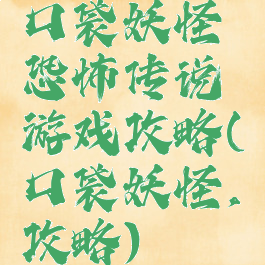 口袋妖怪
恐怖传说
游戏攻略(
口袋妖怪.
攻略)